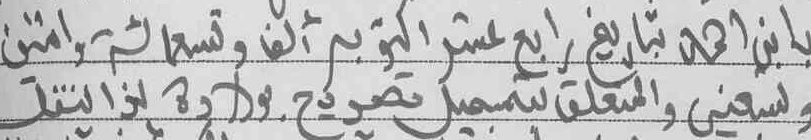 بابن احمد بتاريخ رابع عشر اكتوبر ألف و تسعمائة واثنين
تسعين والمتعلق بتسجيل تصريح بولادة